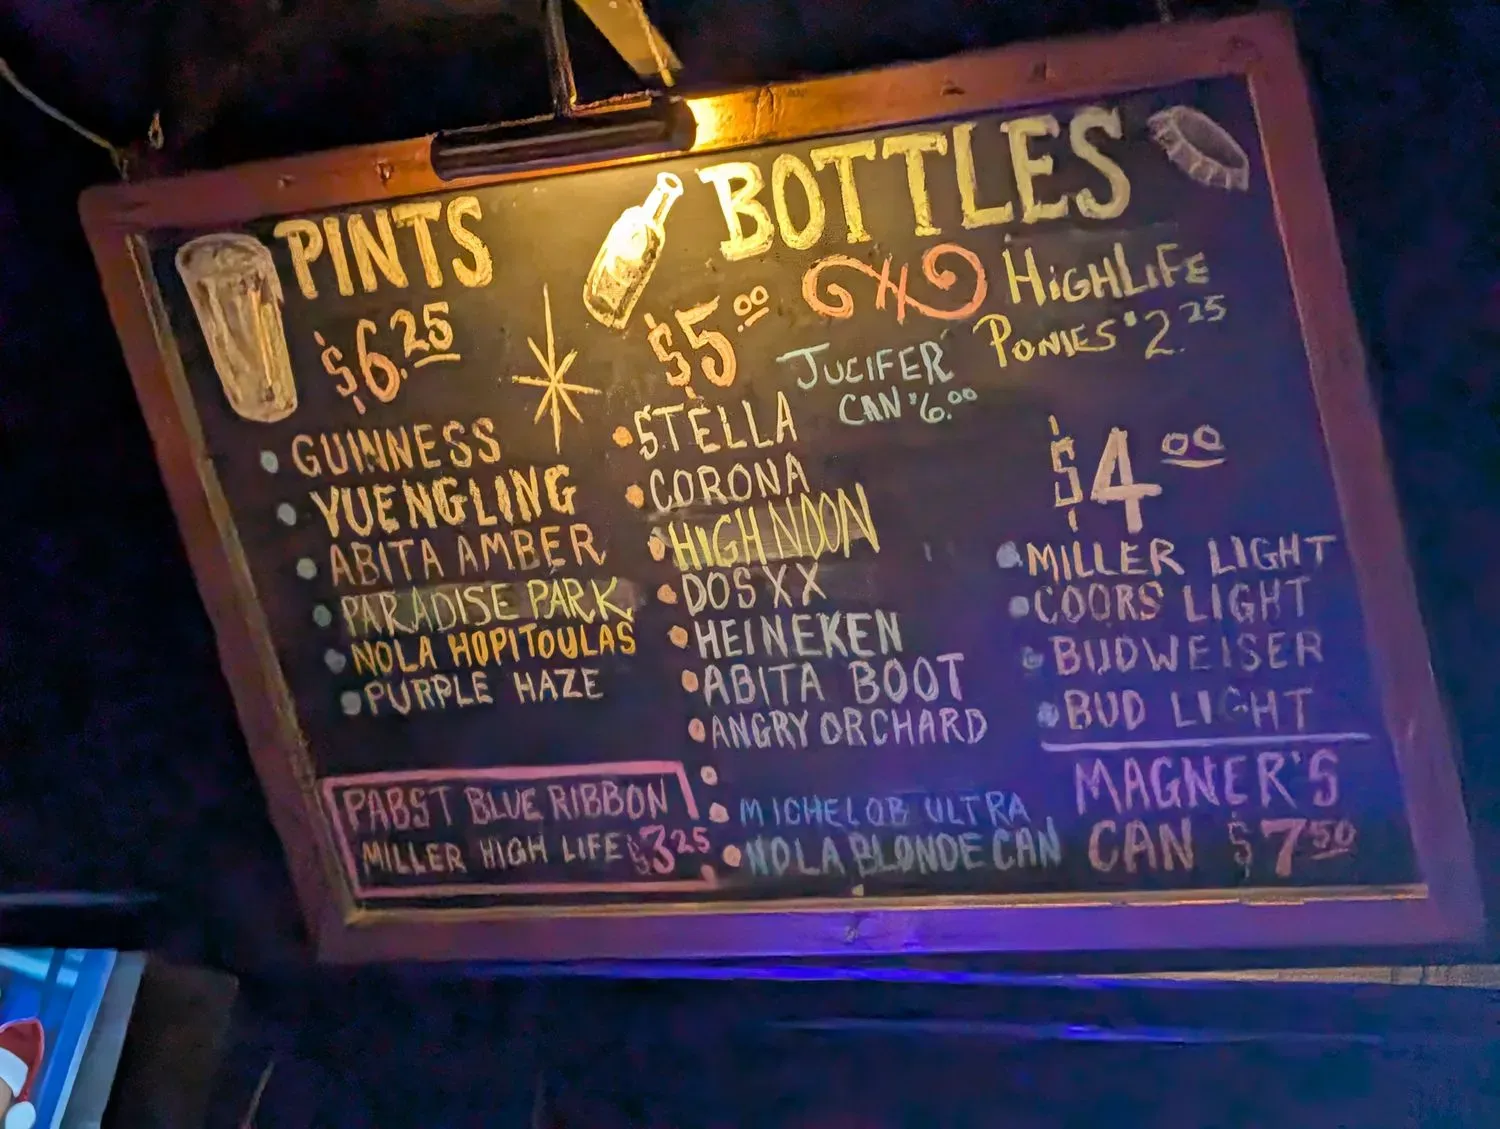 PINTS
$6.25
GUINNESS
YUENGLING
ABITA AMBER
PARADISE PARK
NOLA HOPITOULAS
PURPLE HAZE
PABST BLUE RIBBON
MILLER HIGH LIFE $3.25
BOTTLES
$5.00
STELLA
CORONA
HIGH NOON
DOS XX
HEINEKEN
ABITA BOOT
ANGRY ORCHARD
MICHELOB ULTRA
NOLA BLONDE CAN
JUCIFER
CAN $6.00
HIGHLIFE
PONIES $2.25
$4.00
MILLER LIGHT
COORS LIGHT
BUDWEISER
BUD LIGHT
MAGNER'S
CAN $7.50